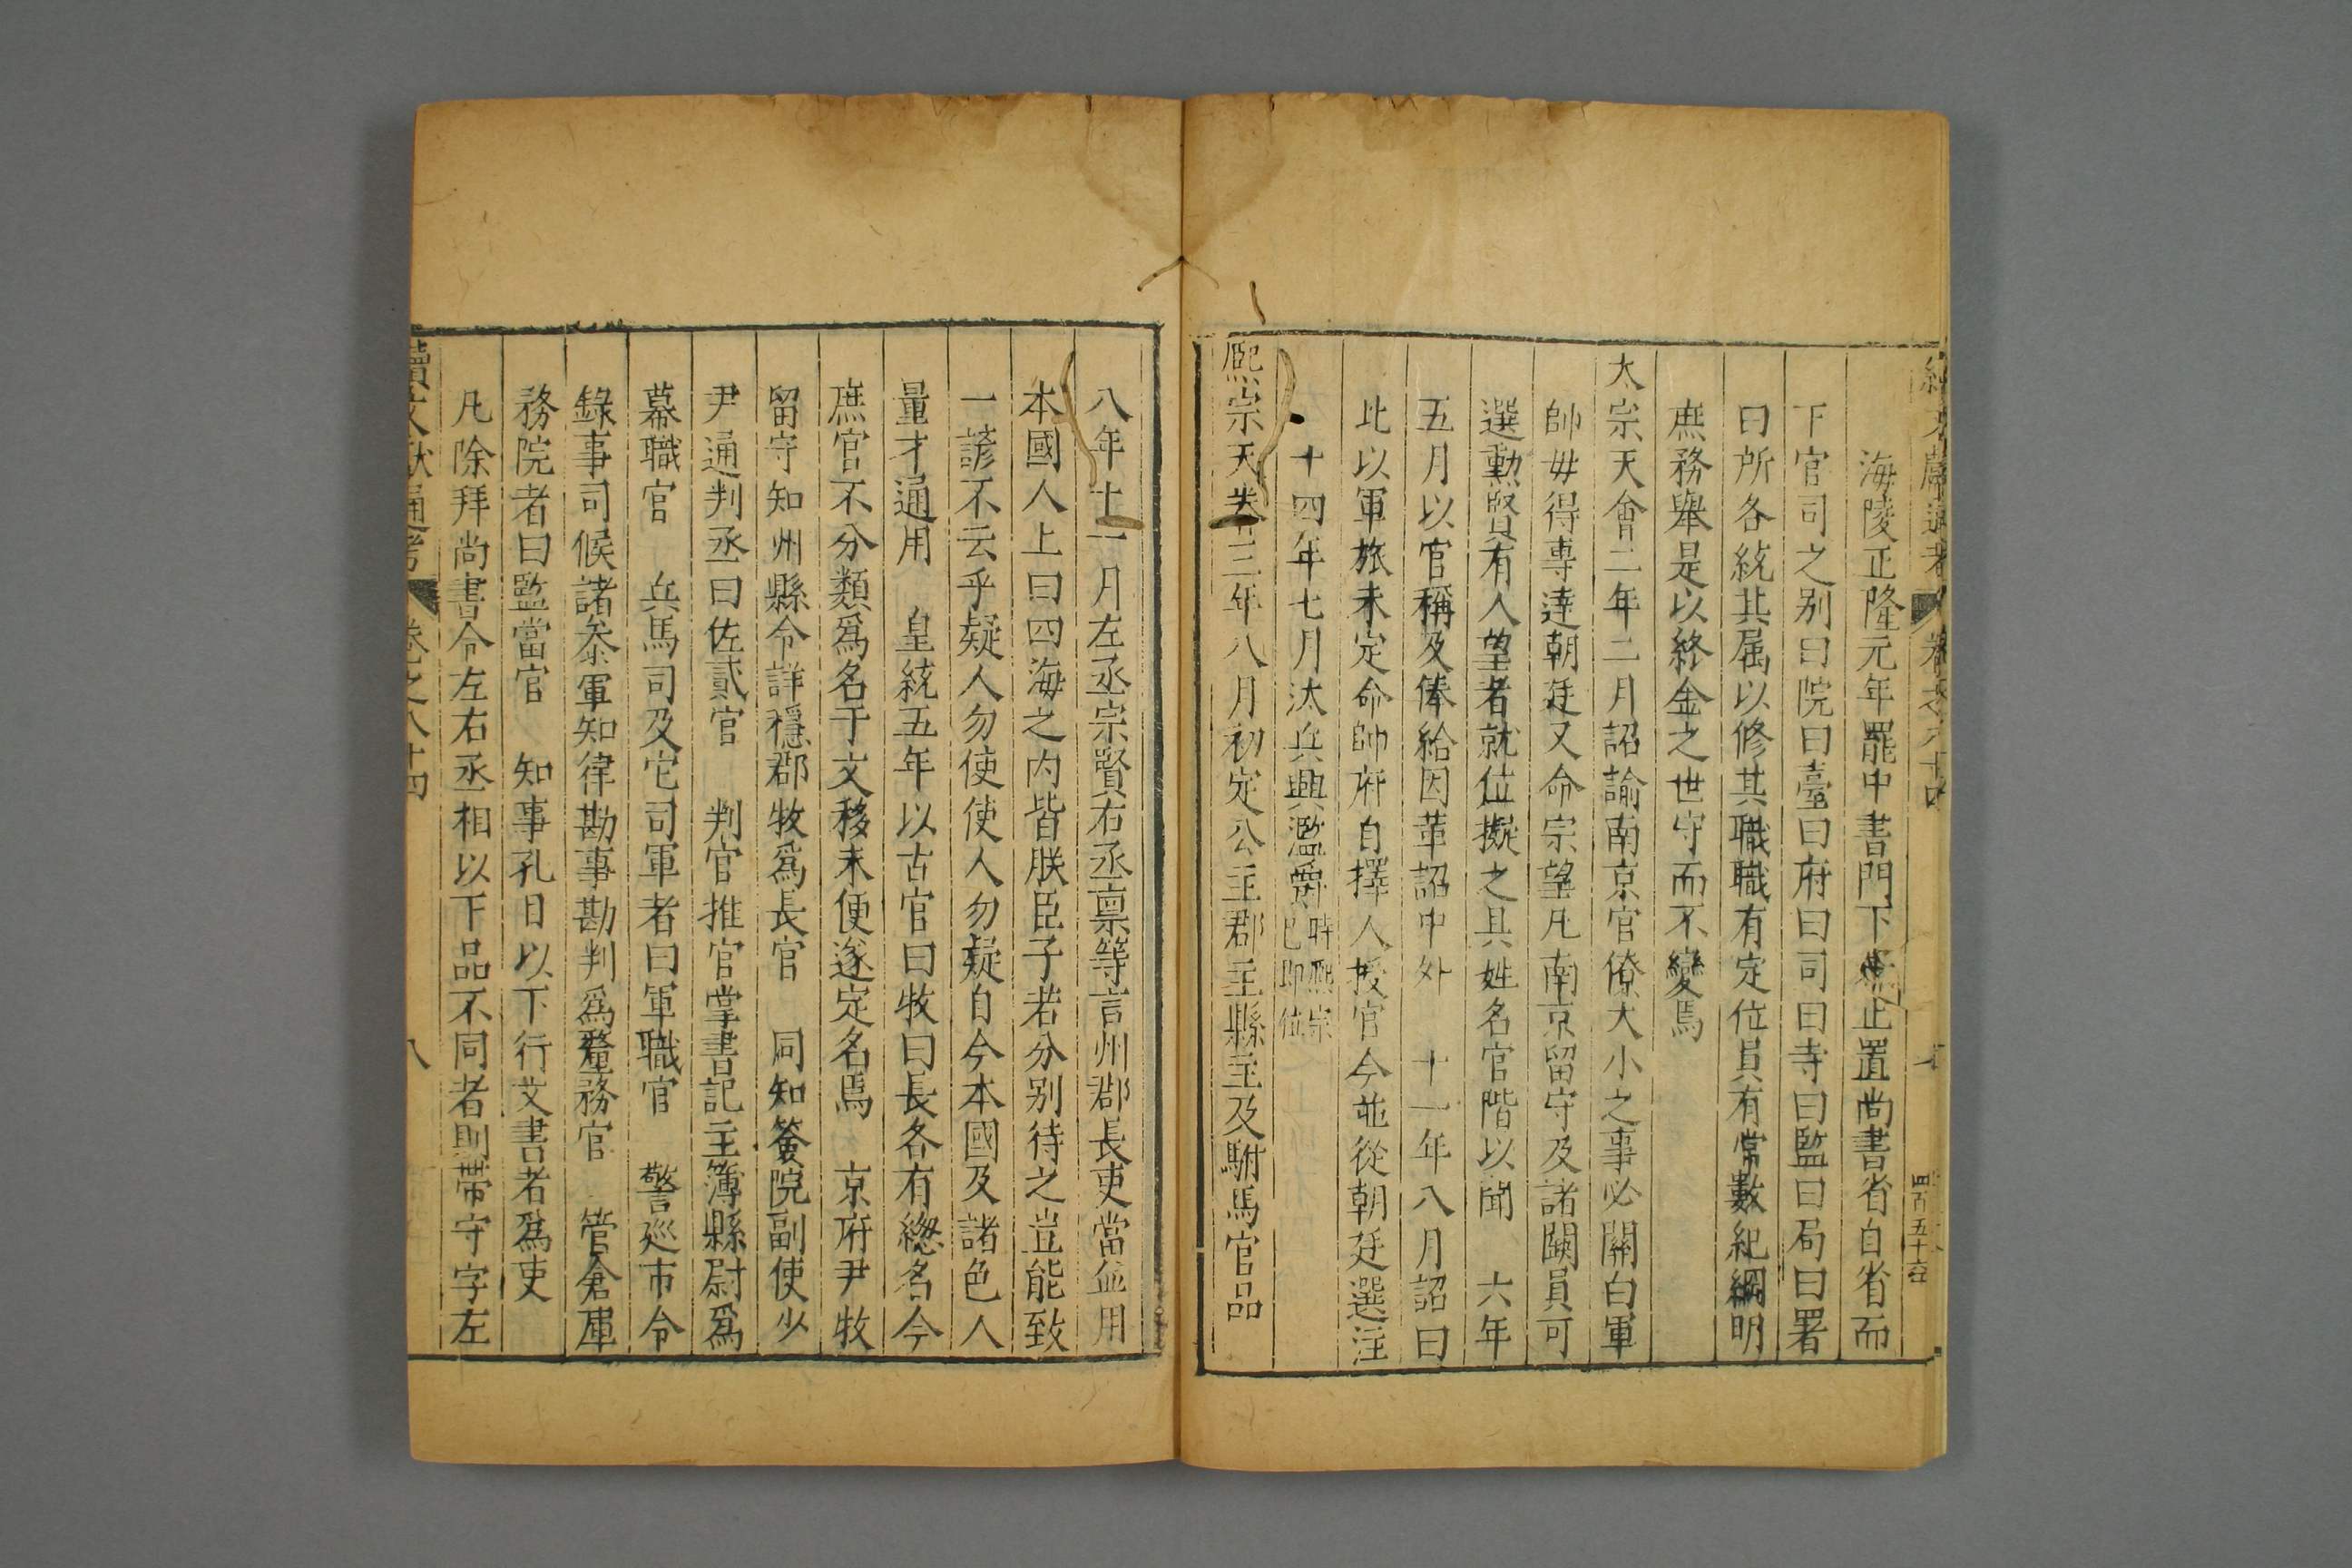 海陵正隆元年罷中書門下止置尚書省自省而
下官司之别曰院曰臺曰府曰司曰寺曰監曰局曰署
曰所各統其属以修其職職有定位員有常數紀綱明
庶務舉是以終金之世守而不變焉
太宗天會二年二月詔諭南京官僚大小之事必關白軍
帥毋得專達朝廷又命宗望凡南京留守及諸闕員可
選勲賢有人望者就位擬之具姓名官階以聞　六年
五月以官稱及俸給因革詔中外　十一年八月詔曰
比以軍旅未定命帥府自擇人授官今並從朝廷選注
十四年七月汰兵興濫爵時熙宗已即位
熙宗天眷三年八月初定公主郡主縣主及駙馬官品
八年十一月左丞宗賢右丞禀等言州郡長吏當並用
本國人上曰四海之内皆朕臣子若分别待之豈能致
一諺不云乎疑人勿使使人勿疑自今本國及諸色人
量才通用　皇統五年以古官曰牧曰長各有緫名今
庶官不分類爲名于文移未便遂定名焉　京府尹牧
留守知州縣令詳穩郡牧爲長官　同知簽院副使少
尹通判丞曰佐貳官　判官推官掌書記主簿縣尉爲
幕職官　兵馬司及它司軍者曰軍職官　警廵市令
錄事司候諸叅軍知律勘事勘判爲釐務官　管倉庫
務院者曰監當官　知事孔目以下行文書者爲吏
凡除拜尚書令左右丞相以下品不同者則帶守字左
續文獻通考　卷之八十四　八